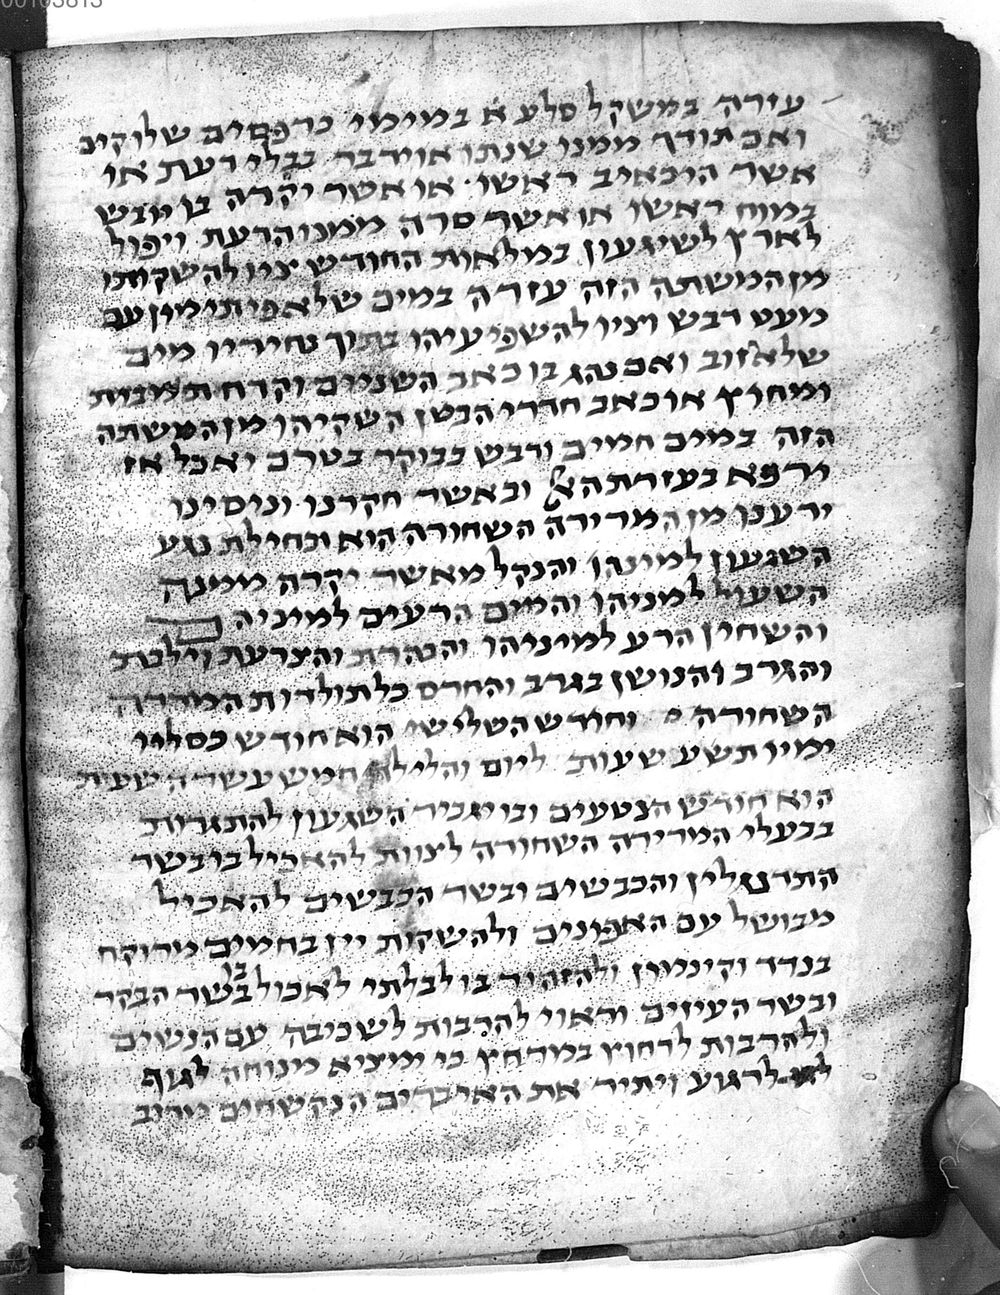 00163813
עזרה במשקל סלע א במימי כרפסים שלוקים
ואם תודך ממנו שנתו או ידבר בבלי דעת או
אשר היכאיב ראשו או אשר יקרה בו יובש
במוח ראשו או אשר סרה ממנו הדעת ויפול
לארץ לשיגעון במלאות החודש צוו להשקותו
מן המשתה הזה עזרה במים שלא פיתימון עם
מעט דבש וציו להשפיעיהו בתוך נחיריו מים
שלאזוב ואם נהג בו כאב השנים וקרחת מבית
ומחוץ או כאב חדרי הבטן השקיהו מן המשתה
הזה במים חמים ודבש בבוקר בטרם יאכל אז
ירפא בעזרת האל ובאשר חקרנו וניסינו
ידענו מן המרירה השחורה הוא תחילת נגע
השגעון למינהו והנקל מאשר יקרה ממנה
השעול למניהו והמים הרעים למיניה
והשחין הרע למיניהו והבהרת והצרעת וילפת
והגרב והנושן בגרב והחרס כל תולדות המרירה
השחורה וחודש השלישי הוא חודש כסליו
ימיו תשע שעות ליום והלילה חמש עשרה שעות
הוא חודש הנטעים ובו יגביר השגעון להתגרות
בבעלי המרירה השחורה לצוות להאכיל בו בשר
התרנגלין והכבשים ובשר הכבשים להאכיל
מבושל עם האפונים ולהשקות יין בחמים מרוקח
בנדד וקינמון ולהזהיר בו לבלתי לאכול בשר הבקר
בו
ובשר העיזים וראוי להרבות לשכיבה עם הנשים
ולהרבות לרחוץ במרחץ כי ימציא מינוחה לגוף
לרגוע ויתיר את האיברים הנקשחים מרוב